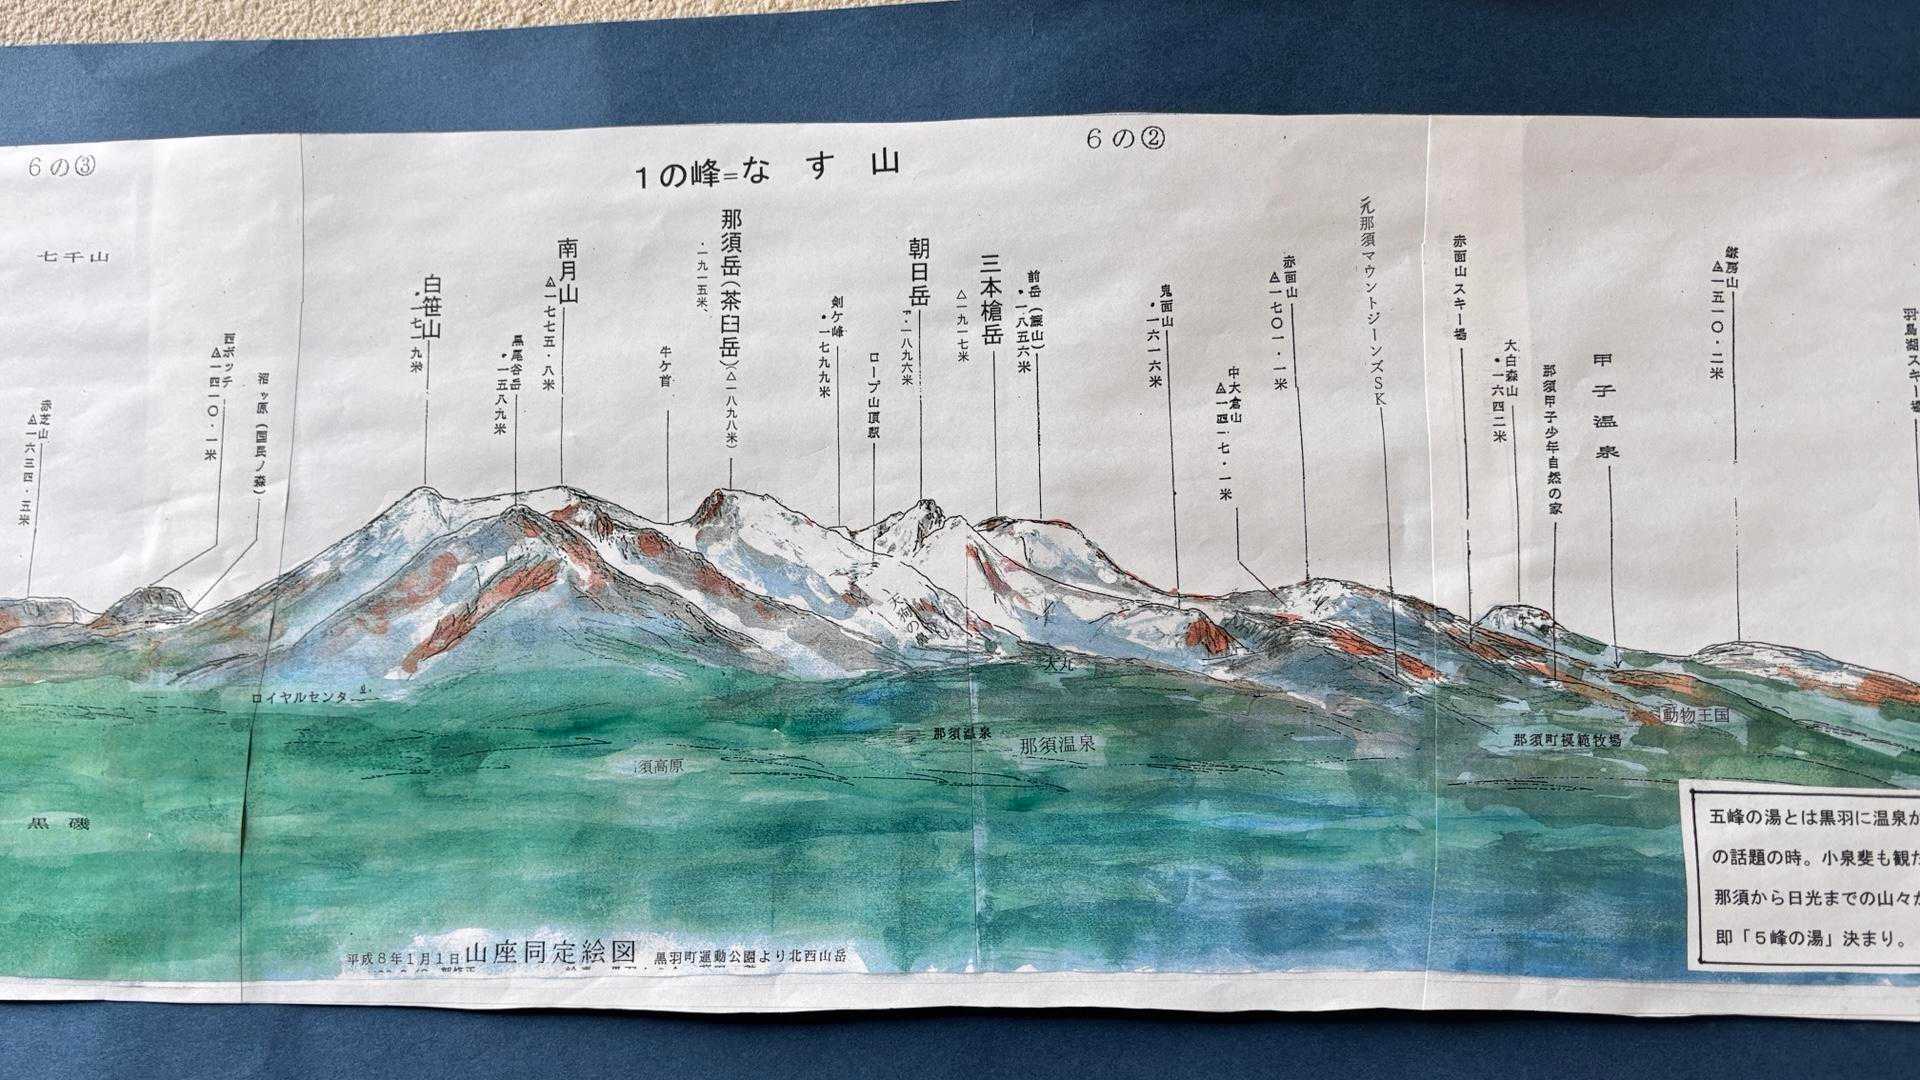 6の③
6の②
1の峰=なす山
七千山
赤芝山
△一六三四・五米
西ボッチ
△一四一〇・一米
沼ッ原(国民ノ森)
白笹山
・一七一九米
黒尾谷岳
・一五八九米
南月山
△一七七五・八米
牛ケ首
那須岳(茶臼岳)(△一八九八米)
・一九一五米、
剣ケ峰
・一七九九米
ロープ山頂駅
朝日岳
・一八九六米
三本槍岳
△一九一七米
前岳
・一八五六米
鬼面山
・一六一六米
中大倉山
赤面山
△一七〇一・一米
元那須マウントジーンズSK
赤面山スキー場
大白森山
・一六四二米
那須甲子少年自然の家
甲子温泉
鎌房山
△一五一〇・二米
羽鳥湖スキー場
天狗の鼻
大丸
ロイヤルセンター
那須温泉
那須温泉
須高原
動物王国
那須町模範牧場
黒磯
平成8年1月1日山座同定絵図 黒羽町運動公園より北西山岳
五峰の湯とは黒羽に温泉が
の話題の時。小泉斐も観た
那須から日光までの山々が
即「5峰の湯」決まり。